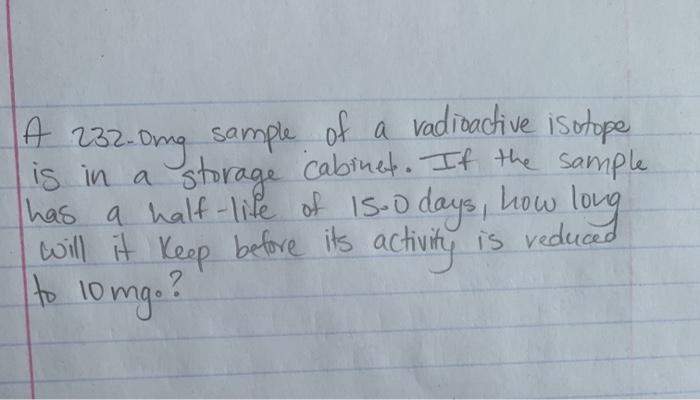 A 232.0mg sample of a radioactive isotope
is in a storage cabinet. If the sample
has a half-life of 15.0 days, how long
will it keep before its activity is reduced
to 10mg.?